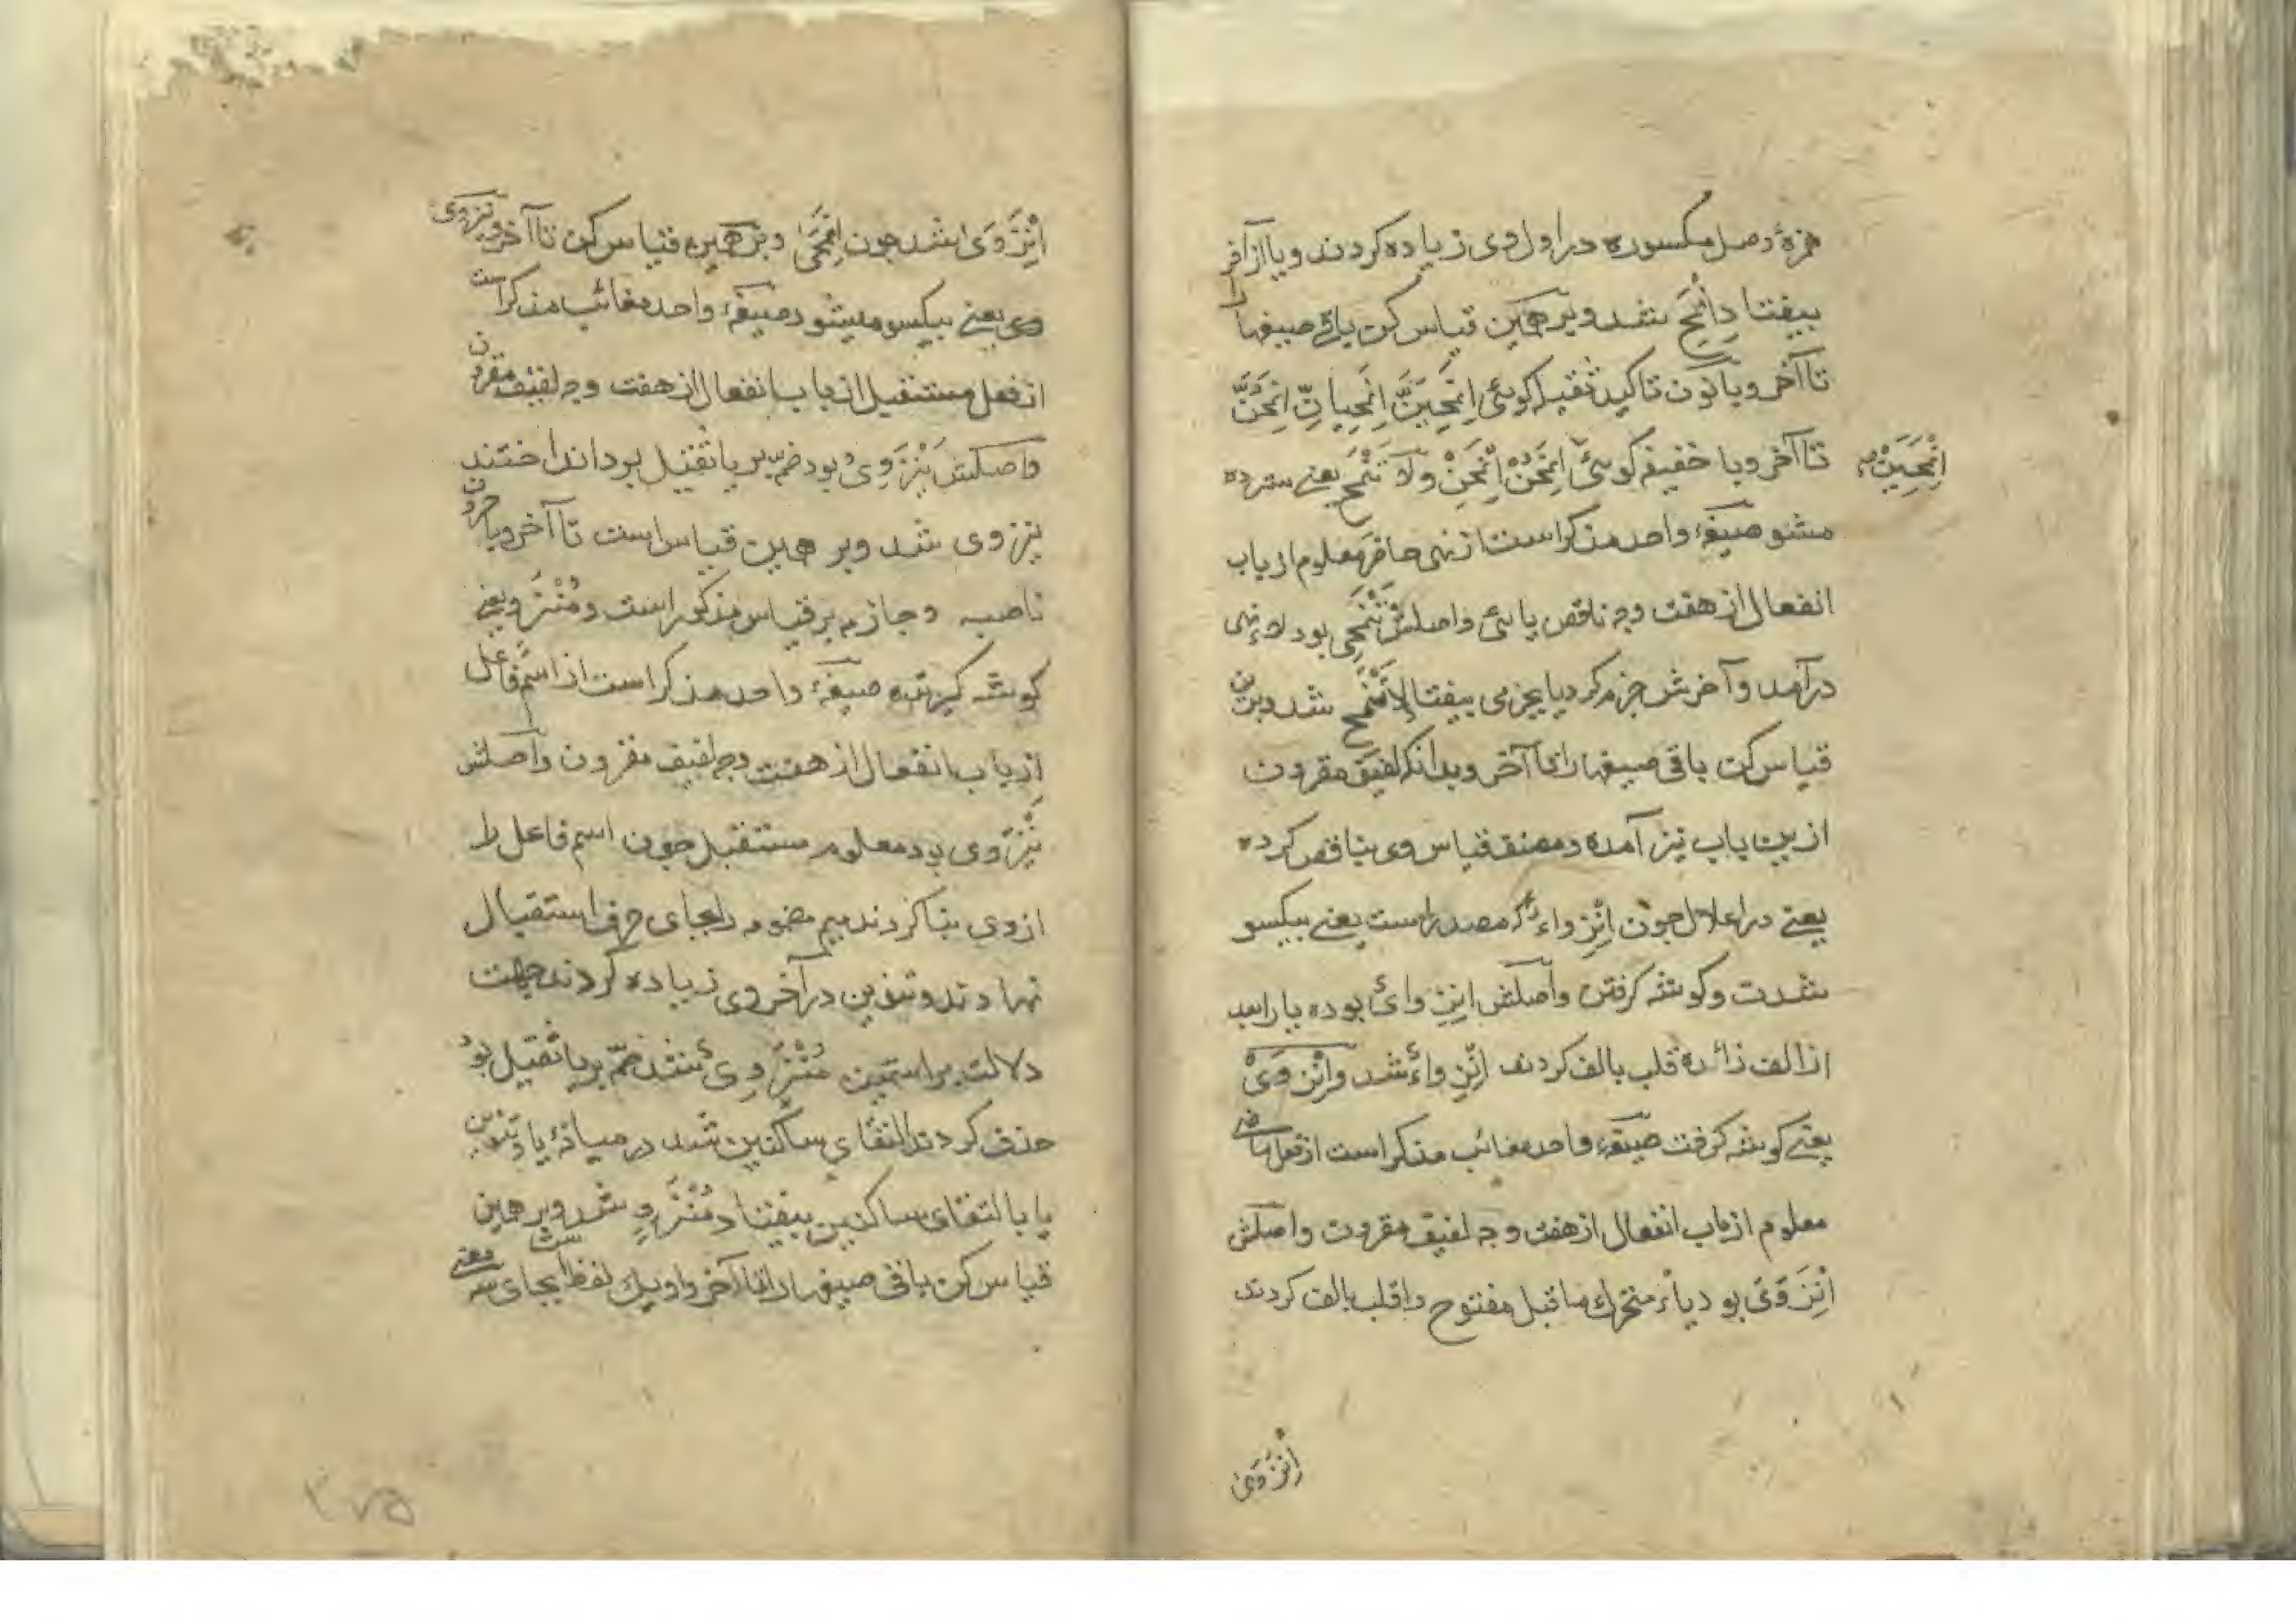 همزهٔ وصل مکسوره در اول وی زیاده کردند و یا از آخر
بیفتاد اِنْمَحِ شد و بر همین قیاس کن باقی صیغها را
تا آخر و با نون تاکید ثقیله کوئی اِنْمَحِیَنَّ اِنْمَحِیانِّ اِنْمَحُنَّ
تا آخر و با خفیفه کوئی اِنْمَحُنْ اِنْمَحِنْ ولا تَنْمَحِ یعنی سترده
اِنْمَحِیَنْ
مشو صیغهٔ واحد مذکر است از نهی حاضر معلوم از باب
انفعال از هفت وجه ناقص یائی و اصلش تَنْمَحِی بود لاء نهی
درآمد و آخرش جزم کرد یا بجزمی بیفتاد لا تَنْمَحِ شد و برین
قیاس کن باقی صیغها را تا آخر و بدانکه لفیف مقرون
ازین باب نیز آمده و مصنف قیاس وی بناقص کرده
یعنی در اعلال چون اِنْزِواء که مصدر است یعنی بیکسو
شدن و کوشه کرفتن و اصلش انزوای بوده یا را بعد
از الف زائده قلب بالف کردند اِنْزِواء شد و اِنْزَوَیْ
یعنی کوشه کرفت صیغهٔ واحد مغائب مذکر است از فعل ماضی
معلوم از باب انفعال از هفت وجه لفیف مقرون و اصلش
اِنْزَوَیَ بود یاء متحرک ماقبل مفتوح را قلب بالف کردند
اِنْزَوَی
اِنْزَوَی شد چون اِنْمَحَی و بر همین قیاس کن تا آخر و ینزوی
وی یعنی بیکسو میشود صیغهٔ واحد مغائب مذکر است
از فعل مستقبل از باب انفعال از هفت وجه لفیف مقرون
و اصلش یَنْزَوِیُ بود ضمه بر یا ثقیل بود انداختند
ینزوی شد و بر همین قیاس است تا آخر و با حروف
ناصبه و جازمه بر قیاس مذکور است و مُنْزَوٍ یعنی
کوشه کیرنده صیغهٔ واحد مذکر است از اسم فاعل
از باب انفعال از هفت وجه لفیف مقرون و اصلش
یَنْزَوِی بود معلوم مستقبل چون اسم فاعل را
از وی بنا کردند میم مضمومه را بجای حرف استقبال
نهادند و تنوین در آخر وی زیاده کردند جهت
دلالت بر اسمیت مُنْزَوِیٌ شد ضمّه بر یا ثقیل بود
حذف کردند التقای ساکنین شد در میانهٔ یا و تنوین
یا بالتقای ساکنین بیفتاد مُنْزَوٍ شد و بر همین
قیاس کن باقی صیغها را تا آخر و او یک لفظ است بجای سه معنی
۲۷۵